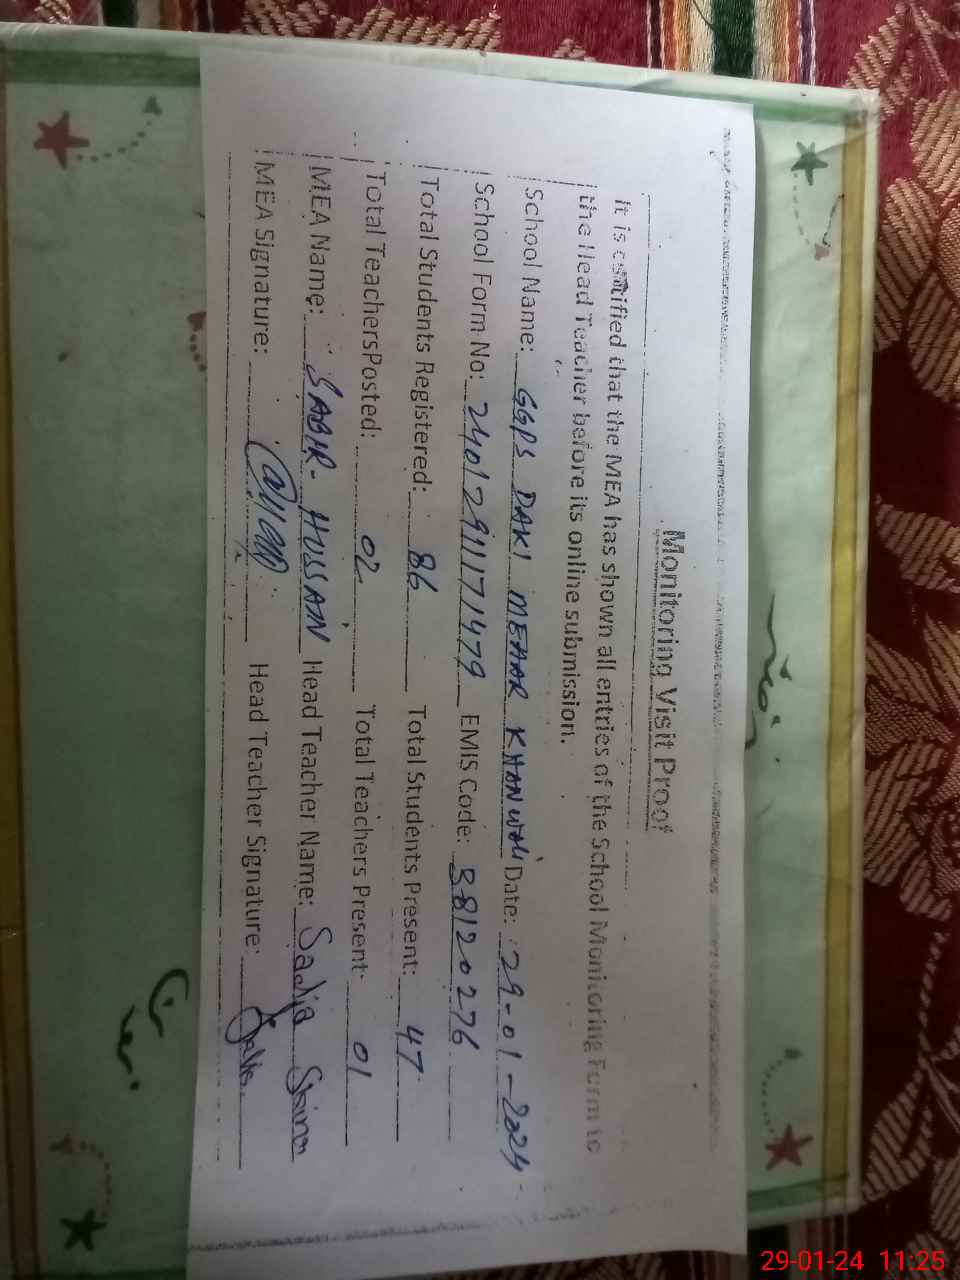 Monitoring Visit Proof
It is certified that the MEA has shown all entries of the School Monitoring Form to
the Head Teacher before its online submission.
School Name: GGPS DAKI MEHAR KHANWALI Date: 29-01-2024
School Form No: 2401291171479 EMIS Code: 38120276
Total Students Registered: 86 Total Students Present: 47
Total TeachersPosted: 02 Total Teachers Present: 01
MEA Name: SABIR HUSSAIN Head Teacher Name: Sadia
MEA Signature: Head Teacher Signature:
29-01-24 11:25